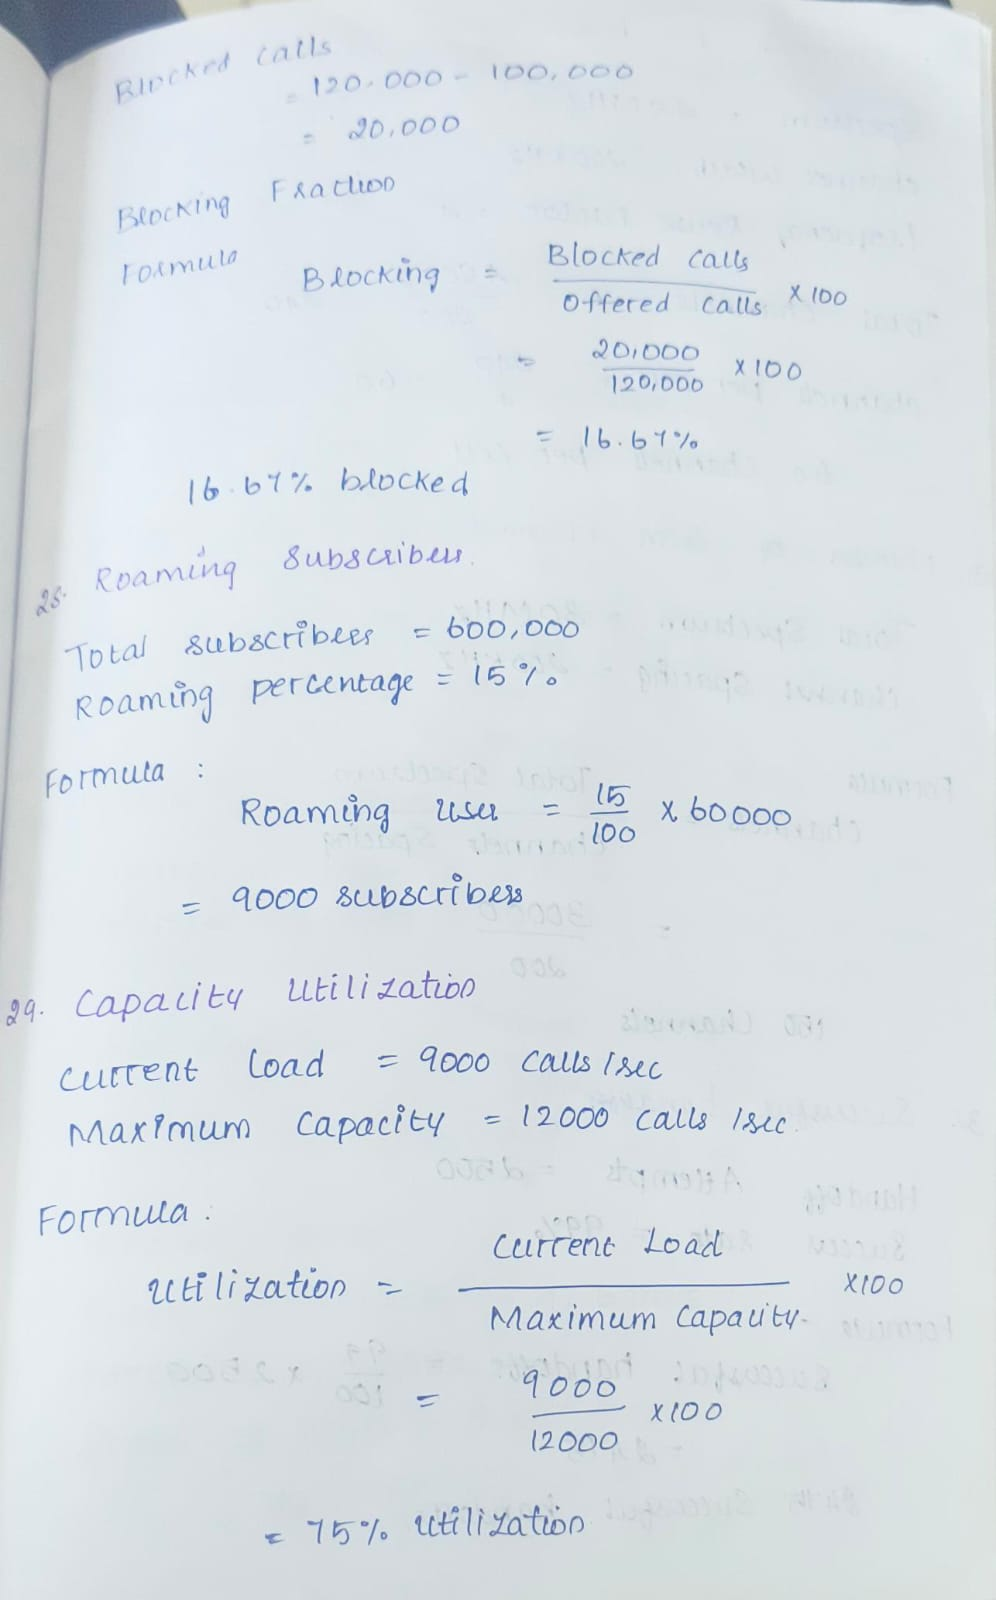 Blocked calls
= 120.000 - 100,000
= 20,000
Blocking Fraction
Formula
Blocking = Blocked calls / Offered calls x 100
= 20,000 / 120,000 x 100
= 16.67%
16.67% blocked
28. Roaming Subscribers.
Total subscribers = 600,000
Roaming percentage = 15%
Formula :
Roaming user = 15 / 100 x 60000
= 9000 subscribers
29. Capacity Utilization
Current load = 9000 calls /sec
Maximum capacity = 12000 calls /sec.
Formula :
Utilization = Current Load / Maximum capacity x100
= 9000 / 12000 x100
= 75% utilization